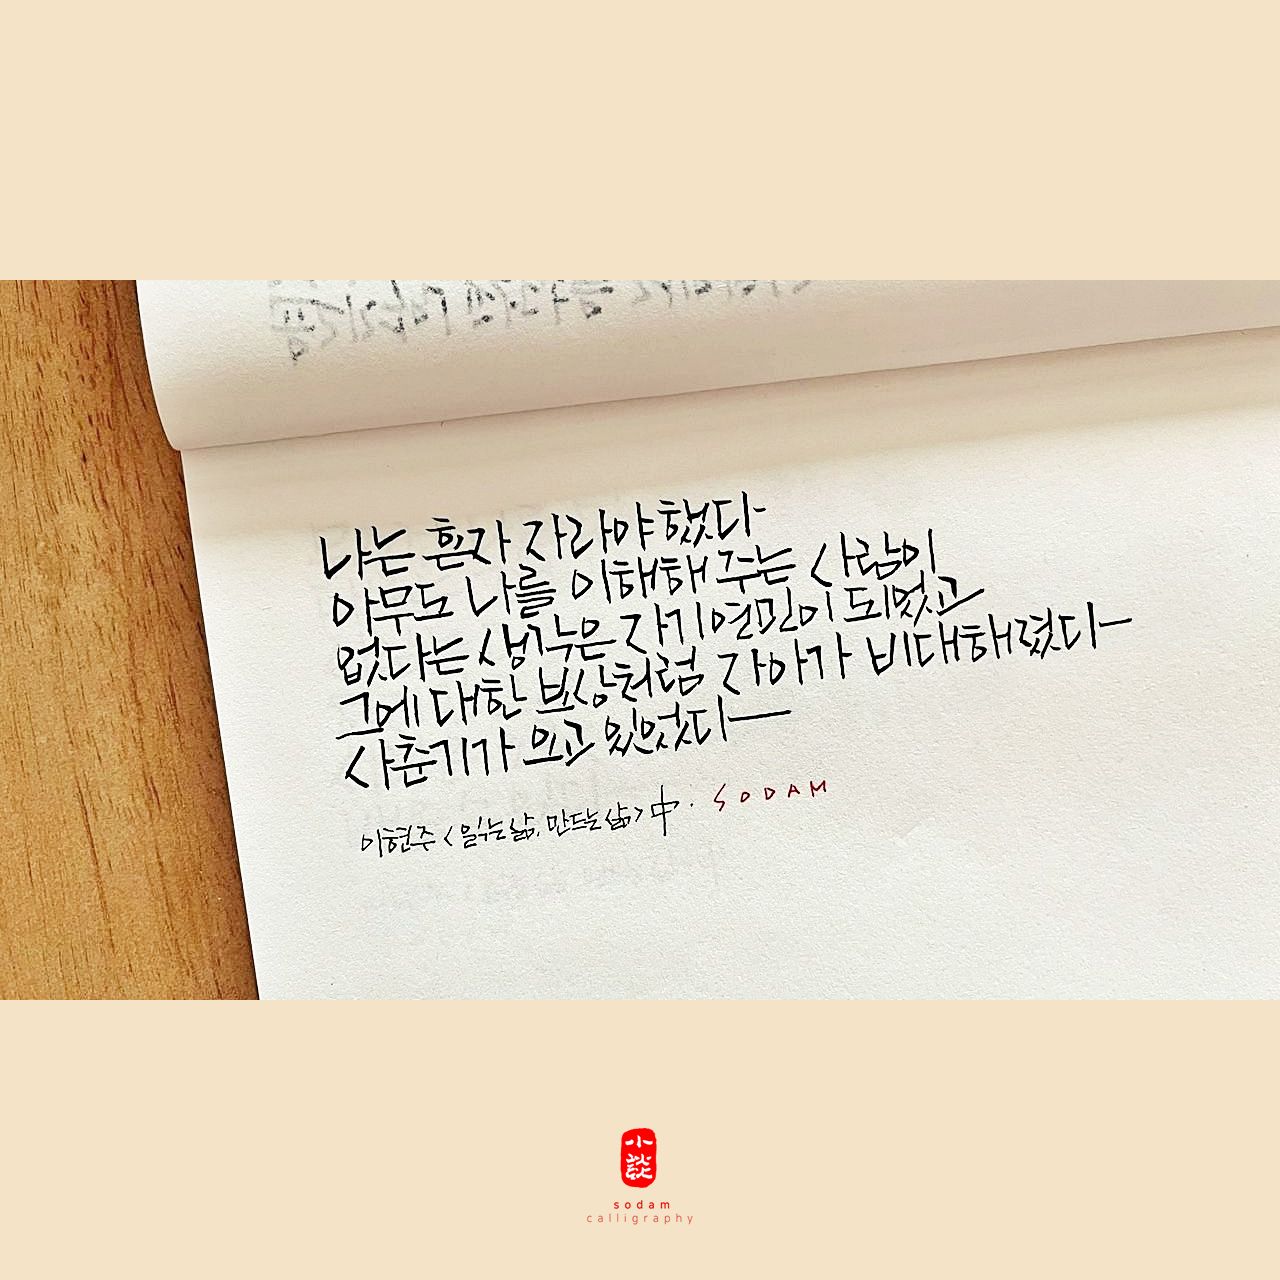 나는 혼자 자라야 했다
아무도 나를 이해해 주는 사람이
없다는 생각은 자기연민이 되었고
그에 대한 보상처럼 자아가 비대해졌다
사춘기가 오고 있었다
이현주 <읽는 삶, 만드는 삶> 中. SODAM
小談
sodam
calligraphy